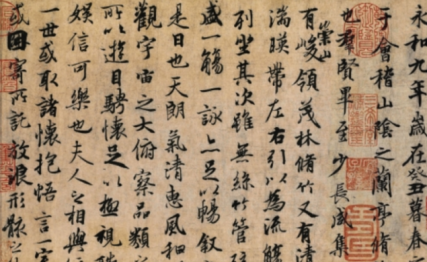 永和九年歲在癸丑暮春
于會稽山陰之蘭亭脩
也群賢畢至少長咸集
有崇山峻領茂林脩竹又有清
湍暎帶左右引以為流觴
列坐其次雖無絲竹管
盛一觴一詠上足以暢叙
是日也天朗氣清惠風和
觀宇宙之大俯察品類
所以遊目騁懷足以極視
娛信可樂也夫人之相與
一世或取諸懷抱悟言一室
或因寄所託放浪形骸之